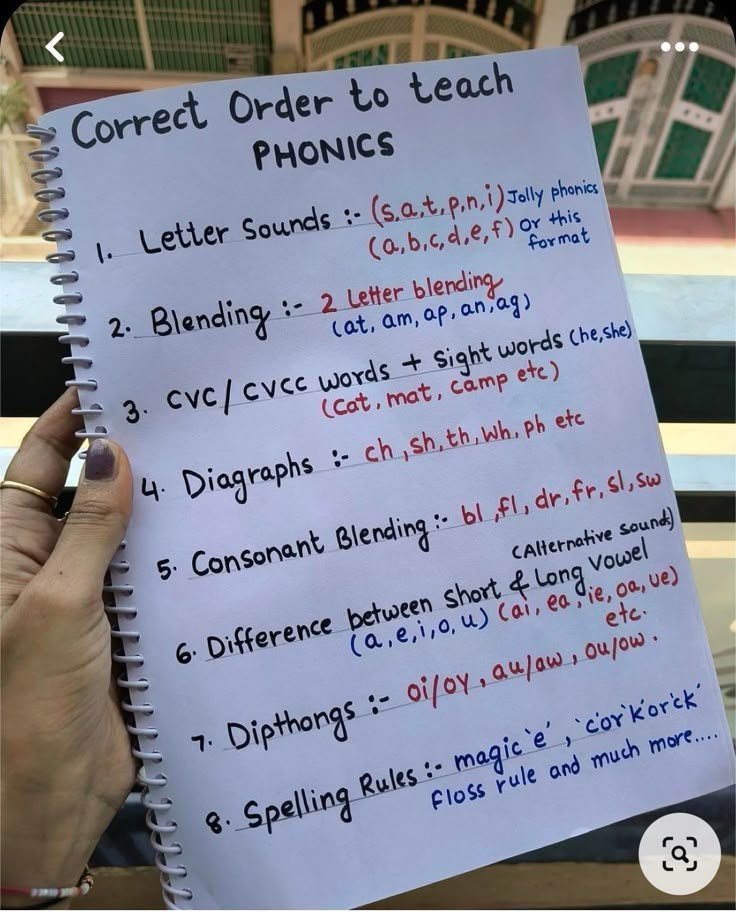 Correct Order to teach
PHONICS
1. Letter Sounds :- (s,a,t,p,n,i) Jolly phonics
(a,b,c,d,e,f) or this
format
2. Blending :- 2 Letter blending
(at, am, ap, an, ag)
3. CVC/CVCC words + Sight words (he,she)
(cat, mat, camp etc)
4. Diagraphs :- ch, sh, th, wh, ph etc
5. Consonant Blending :- bl, fl, dr, fr, sl, sw
(Alternative sounds)
6. Difference between short & Long Vowel
(a,e,i,o,u) (ai, ea, ie, oa, ue)
etc.
7. Dipthongs :- oi/oy, au/aw, ou/ow.
8. Spelling Rules :- magic 'e', 'c'or'k'or'ck'
Floss rule and much more....